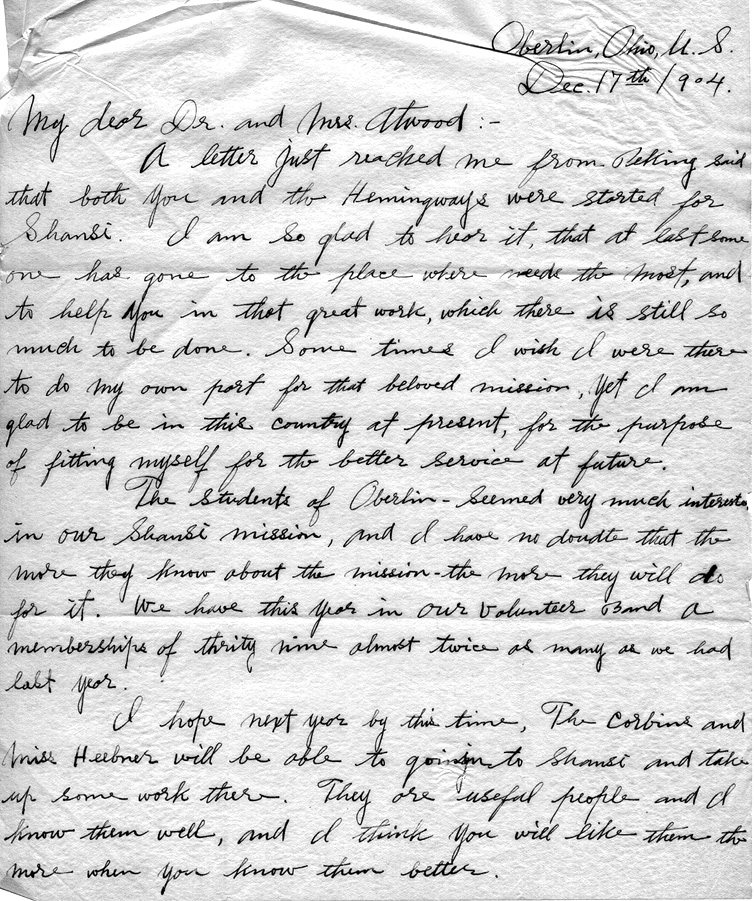 Oberlin, Ohio, U. S.
Dec. 17th /904.
My dear Dr. and Mrs. Atwood :-
A letter just reached me from Peking said
that both you and the Hemingways were started for
Shansi. I am so glad to hear it, that at last some
one has gone to the place where needs the most, and
to help you in that great work, which there is still so
much to be done. Some times I wish I were there
to do my own part for that beloved mission, yet I am
glad to be in this country at present, for the purpose
of fitting myself for the better service at future.
The students of Oberlin - seemed very much interests
in our Shansi mission, and I have no doudte that the
more they know about the mission - the more they will do
for it. We have this year in our Volunteer Band a
memberships of thrity nine almost twice as many as we had
last year.
I hope next year by this time, The Corbins and
Miss Heebner will be able to going to Shansi and take
up some work there. They are useful people and I
know them well, and I think you will like them the
more when you know them better.